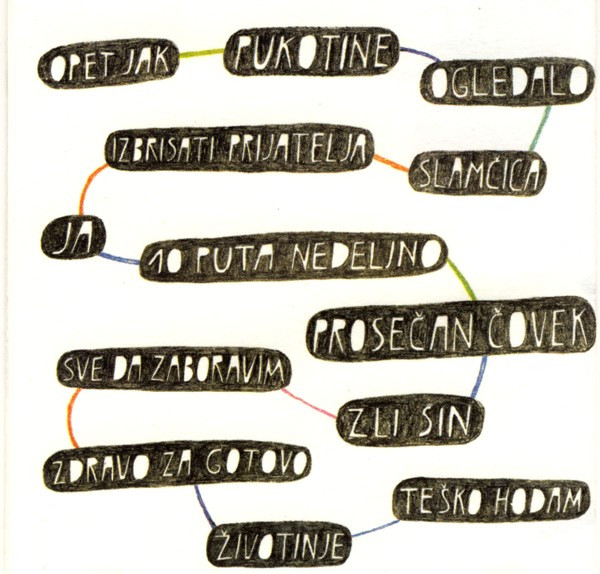 OPET JAK
PUKOTINE
OGLEDALO
SLAMČICA
IZBRISATI PRIJATELJA
JA
10 PUTA NEDELJNO
PROSEČAN ČOVEK
ZLI SIN
SVE DA ZABORAVIM
ZDRAVO ZA GOTOVO
ŽIVOTINJE
TEŠKO HODAM